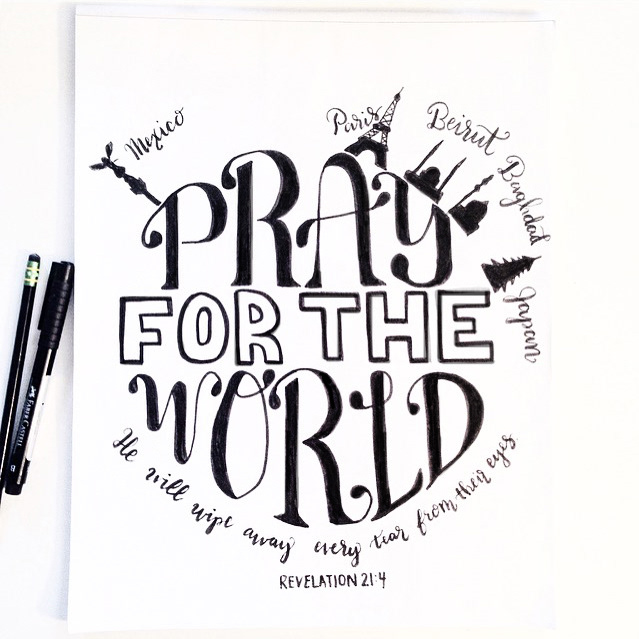 Mexico
Paris
Beirut
Baghdad
Japan
PRAY
FOR THE
WORLD
He will wipe away every tear from their eyes
REVELATION 21:4
FABER CASTELL